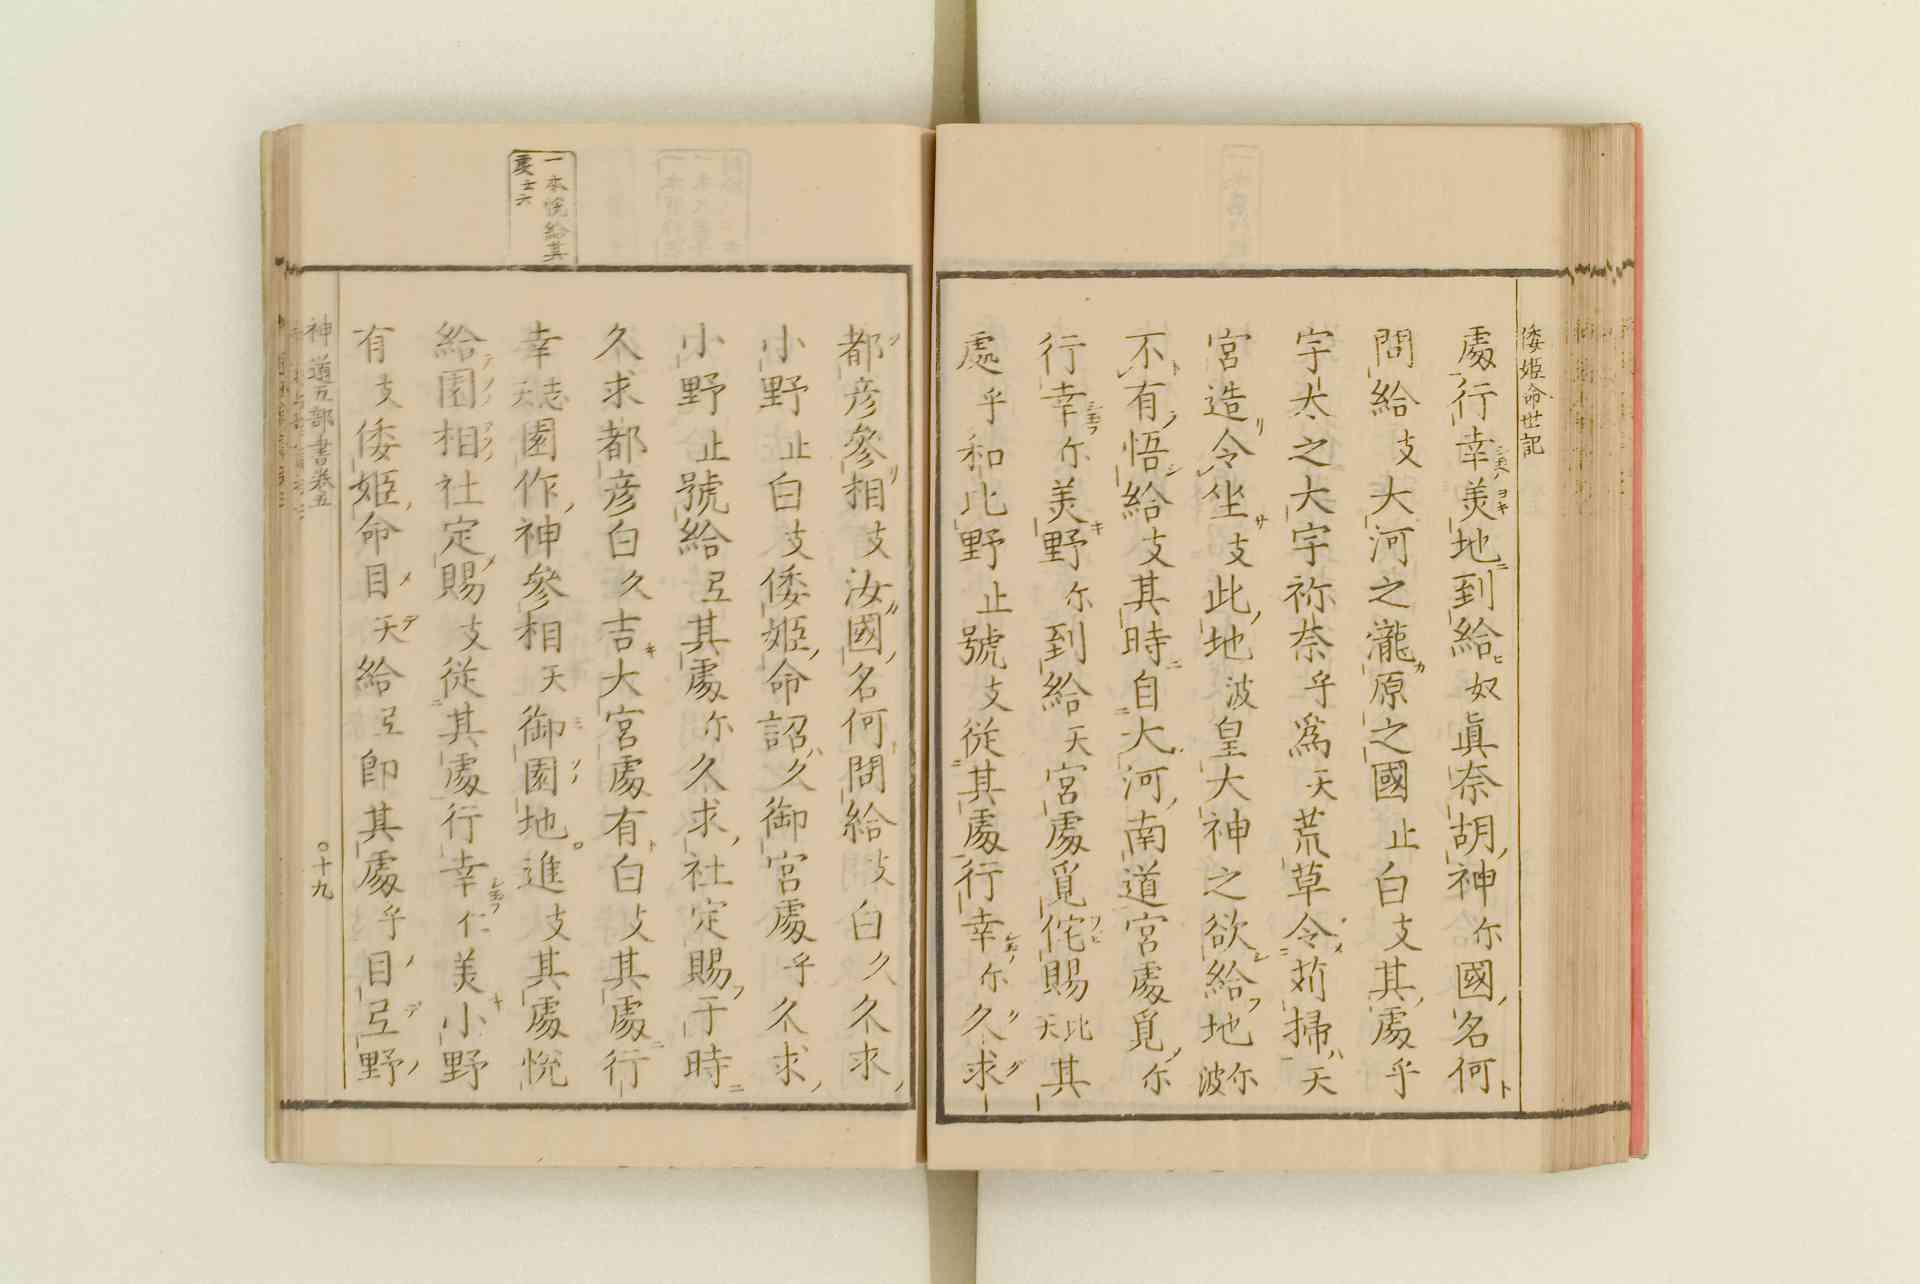 倭姫命世記
處行幸美地到給奴眞奈胡神尓國名何
問給支大河之瀧原之國止白支其處乎
宇大之大宇祢奈乎爲天荒草令苅掃天
宮造令坐支此地波皇大神之欲給地尓波
不有悟給支其時自大河南道宮處覓尓
行幸尓美野尓到給天宮處覓侘賜比天其
處乎和比野止號支從其處行幸尓久求
一本悅給其
處士六
都彦參相支汝國名何問給支白久久求
小野止白支倭姫命詔久御宮處乎久求
小野止號給弖其處尓久求社定賜于時
久求都彦白久吉大宮處有白支其處行
幸志天園作神參相天御園地進支其處悅
給園相社定賜支從其處行幸仁美小野
有支倭姫命目天給弖卽其處乎目弖野
神道五部書卷五
○十九